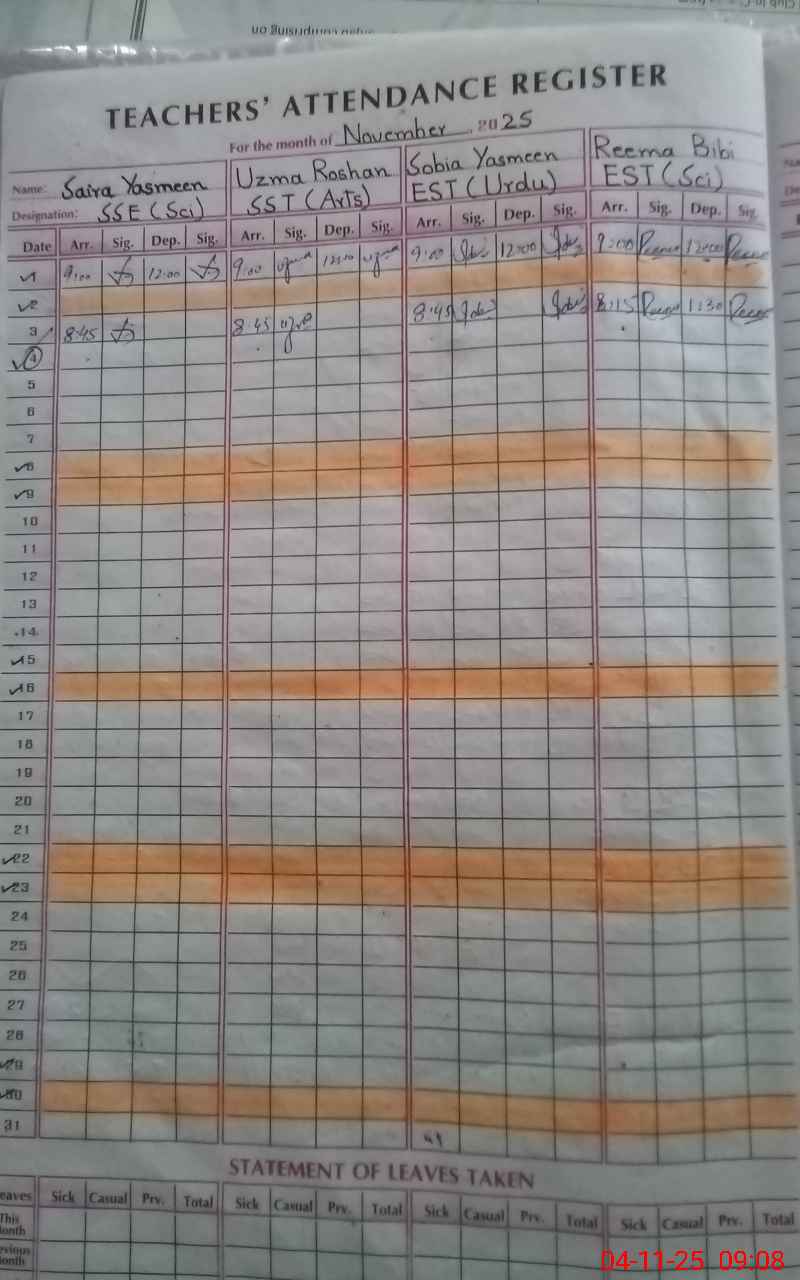 TEACHERS' ATTENDANCE REGISTER
For the month of November 2025
Name: Saira Yasmeen Uzma Roshan Sobia Yasmeen Reema Bibi
Designation: SSE (Sci) SST (Arts) EST (Urdu) EST (Sci)
Date Arr. Sig. Dep. Sig. Arr. Sig. Dep. Sig. Arr. Sig. Dep. Sig. Arr. Sig. Dep. Sig.
1 9:00 12:00 9:00 12:00 9:00 12:00 9:00 12:00
2
3 8:45 8:45 8:45 8:15 1:30
4
5
6
7
8
9
10
11
12
13
14
15
16
17
18
19
20
21
22
23
24
25
26
27
28
29
30
31
STATEMENT OF LEAVES TAKEN
eaves Sick Casual Prv. Total Sick Casual Prv. Total Sick Casual Prv. Total Sick Casual Prv. Total
This
onth
evious
onth
04-11-25 09:08